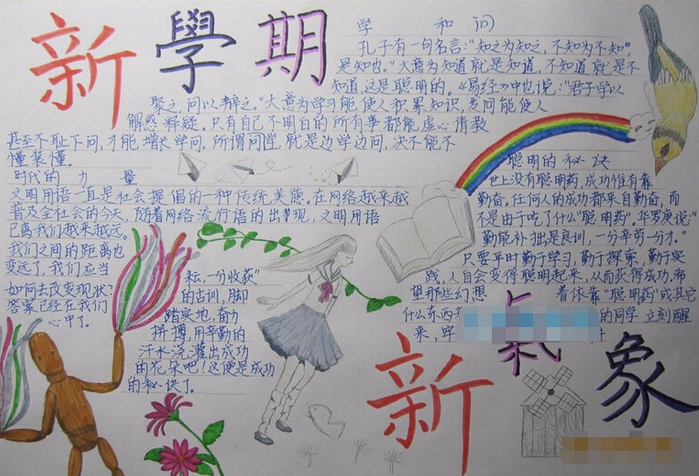 新學期
学和问
孔子有一句名言:"知之为知之,不知为不知,
是知也。"大意为知道就是知道,不知道就是不
知道,这是聪明的。《易经》中也说:"君子学以
聚之,问以辩之。"大意为学习能使人积累知识,发问能使人
解惑释疑。只有自己不明白的所有事都能虚心请教
甚至不耻下问,才能增长学问。所谓同学,就是边学边问,决不能不
懂装懂。
时代的力量
文明用语一直是社会提倡的一种传统美德。在网络越来越
普及全社会的今天,随着网络流行语的出现,文明用语
已离我们越来越远。
我们之间的距离也
变远了,我们应当
如何去改变现状?
答案已经在我们
心中了。
聪明的秘诀
世上没有聪明药,成功惟有靠
勤奋,任何人的成功都来自勤奋,而
不是由于吃了什么"聪明药"。华罗庚说:
"勤能补拙是良训,一分辛劳一分才。"
只要平时勤于学习,勤于探索,勤于实
践,人自会变得聪明起来,从而获得成功。希
望那些幻想着依靠"聪明药"或其它
什么东西
的同学立刻醒
来,牢
耘,一份收获"
的古训,脚
踏实地,奋力
拼搏,用辛勤的
汗水浇灌出成功
的花朵吧!这便是成功
的秘诀了。
新氣象